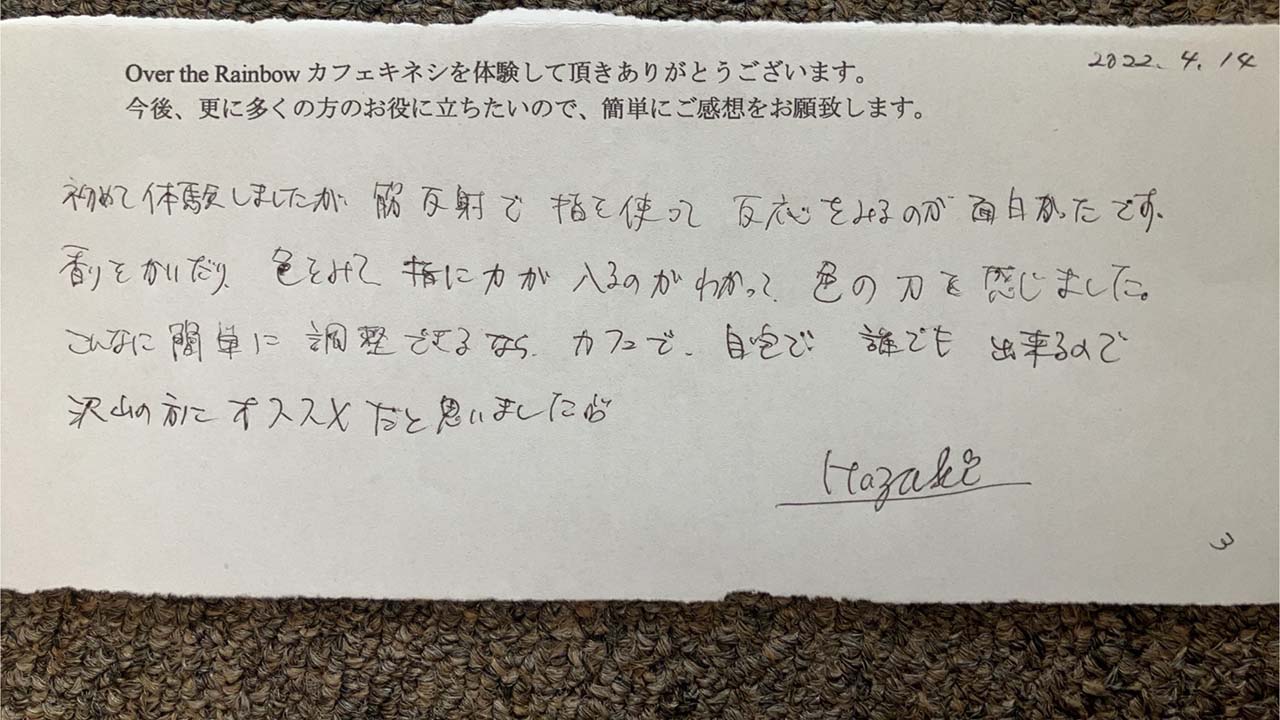 2022.4.14
Over the Rainbow カフェキネシを体験して頂きありがとうございます。
今後、更に多くの方のお役に立ちたいので、簡単にご感想をお願致します。
初めて体験しましたが、筋反射で指を使って反応をみるのが面白かったです。
香りをかいだり、色をみて指に力が入るのがわかって、色の力を感じました。
こんなに簡単に調整できるなら、カフェで、自宅で誰でも出来るので
沢山の方にオススメだと思いました
Hazaki
3